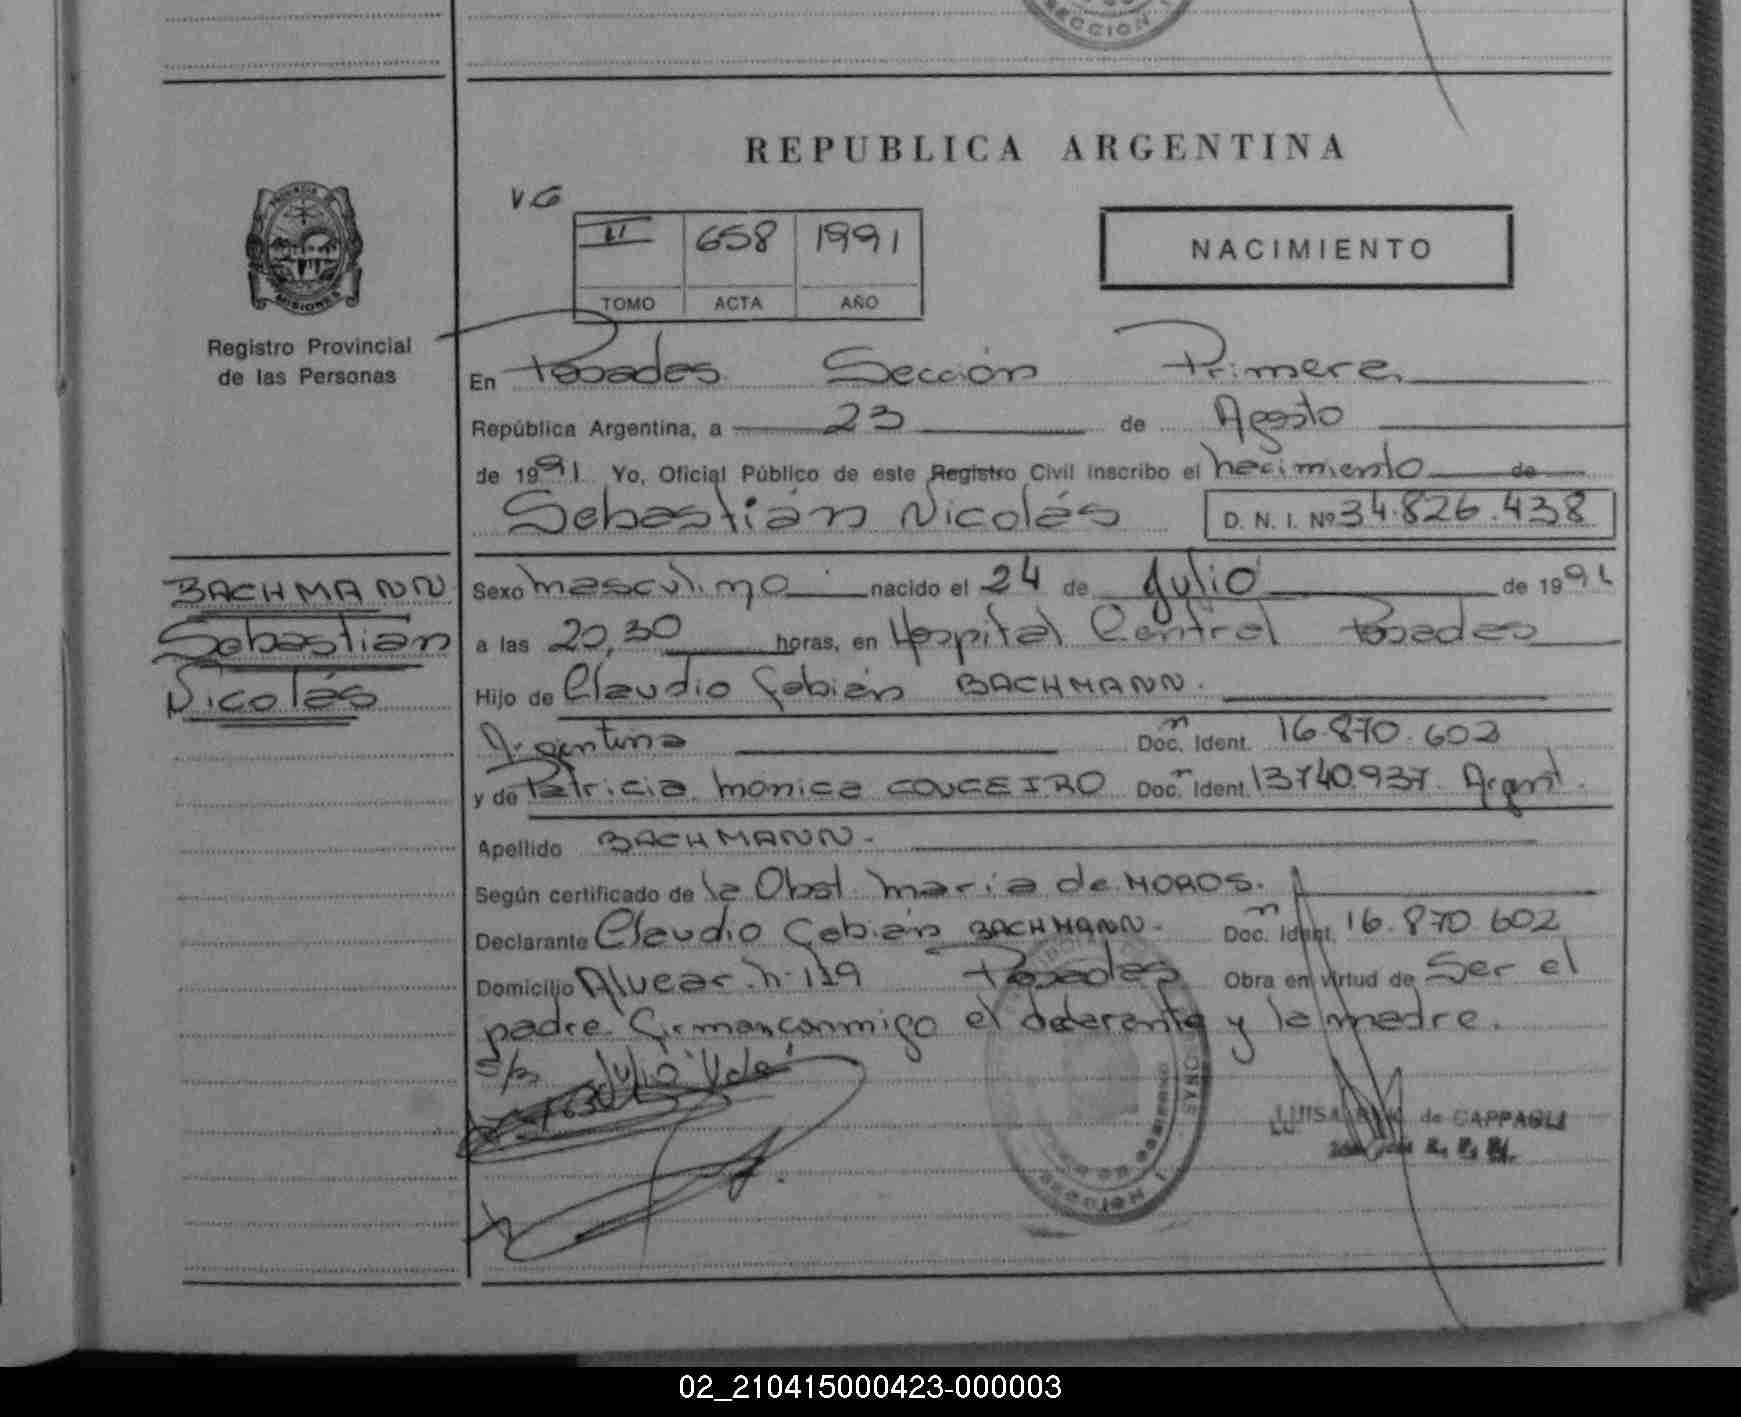 SECCION
REPUBLICA ARGENTINA
V.G
II 658 1991
TOMO ACTA AÑO
NACIMIENTO
MISIONES
Registro Provincial
de las Personas
En Posadas Sección Primera
República Argentina, a 23 de Agosto
de 1991 Yo, Oficial Público de este Registro Civil inscribo el nacimiento de
Sebastián Nicolás D. N. I. Nº 34.826.438
BACHMANN
Sebastian
Nicolás
Sexo masculino nacido el 24 de Julio de 1991
a las 20,30 horas, en Hospital Central Posadas
Hijo de Claudio Fabián BACHMANN.
Argentina Doc. Ident. 16.870.602
y de Patricia Monica COUCEIRO Doc. Ident. 13740.937. Argent.
Apellido BACHMANN.
Según certificado de la Obst. Maria de MOROS.
Declarante Claudio Fabián BACHMANN. Doc. Ident. 16.870.602
Domicilio Alvear n. 119 Posadas Obra en virtud de Ser el
padre. Firman conmigo el declarante y la madre.
LUISA de CAPPAGLI
02_210415000423-000003